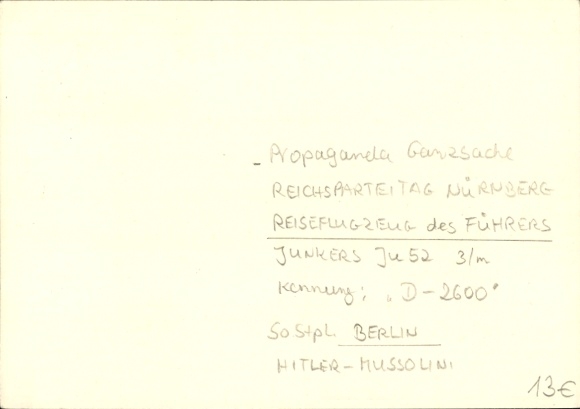 - Propaganda Ganzsache
REICHSPARTEITAG NÜRNBERG
REISEFLUGZEUG des FÜHRERS
JUNKERS Ju 52 3/m
Kennung: "D-2600"
SoStpl. BERLIN
HITLER-MUSSOLINI
13€